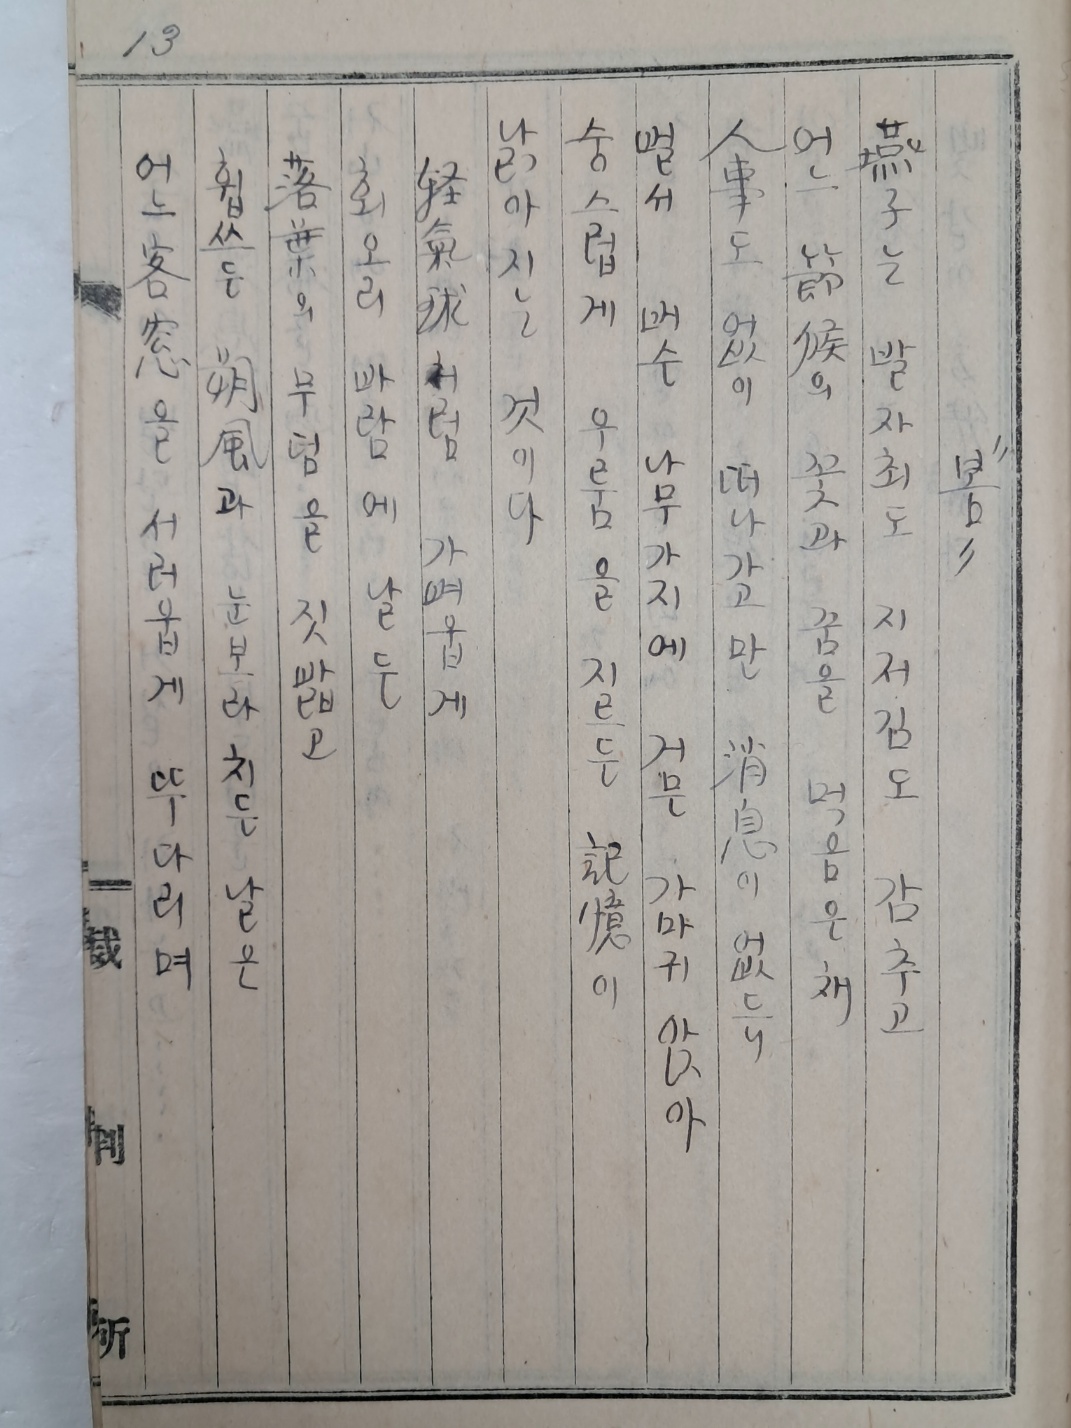 13
"봄"
燕子는 발자최도 지저김도 감추고
어느 節候의 꽃과 꿈을 먹음은 채
人事도 없이 떠나갔고만 消息이 없드니
벌서 배순 나무가지에 거믄 가마귀 앉아
숭스럽게 우름을 지르든 記憶이
낡아지는 것이다
経氣球처럼 가벼웁게
회오리 바람에 날든
落葉의 무덤을 짓밟고
휩쓰든 朔風과 눈보라 치든 날은
어느 客窓을 서러웁게 뚜다리며
裁 判 所